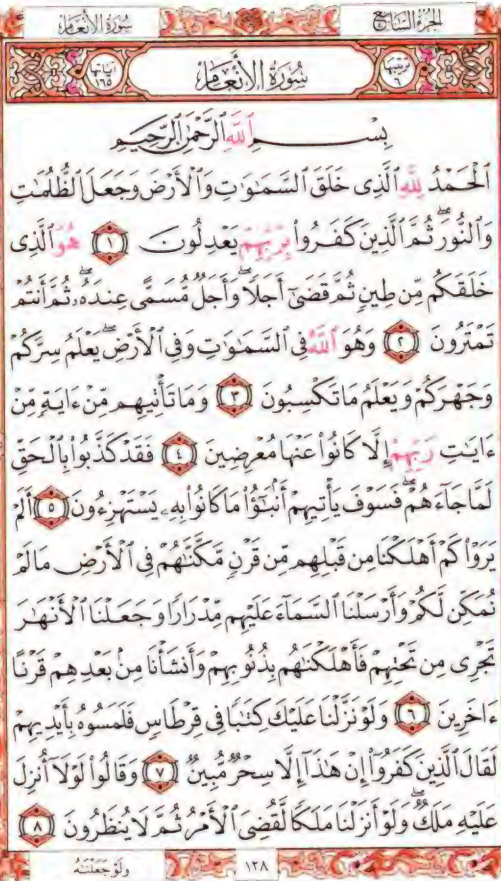 سُورَةُ الأَنْعَامِ الجُزْءُ السَّابِع
آيَاتُهَا ١٦٥ سُورَةُ الأَنْعَامِ تَرْتِيبُهَا ٦
بِسْمِ ٱللَّهِ ٱلرَّحْمَٰنِ ٱلرَّحِيمِ
ٱلْحَمْدُ لِلَّهِ ٱلَّذِى خَلَقَ ٱلسَّمَٰوَٰتِ وَٱلْأَرْضَ وَجَعَلَ ٱلظُّلُمَٰتِ
وَٱلنُّورَۖ ثُمَّ ٱلَّذِينَ كَفَرُوا۟ بِرَبِّهِمْ يَعْدِلُونَ ١ هُوَ ٱلَّذِى
خَلَقَكُم مِّن طِينٍ ثُمَّ قَضَىٰٓ أَجَلًاۖ وَأَجَلٌ مُّسَمًّى عِندَهُۥۖ ثُمَّ أَنتُمْ
تَمْتَرُونَ ٢ وَهُوَ ٱللَّهُ فِى ٱلسَّمَٰوَٰتِ وَفِى ٱلْأَرْضِۖ يَعْلَمُ سِرَّكُمْ
وَجَهْرَكُمْ وَيَعْلَمُ مَا تَكْسِبُونَ ٣ وَمَا تَأْتِيهِم مِّنْ ءَايَةٍ مِّنْ
ءَايَٰتِ رَبِّهِمْ إِلَّا كَانُوا۟ عَنْهَا مُعْرِضِينَ ٤ فَقَدْ كَذَّبُوا۟ بِٱلْحَقِّ
لَمَّا جَآءَهُمْۖ فَسَوْفَ يَأْتِيهِمْ أَنۢبَٰٓؤُا۟ مَا كَانُوا۟ بِهِۦ يَسْتَهْزِءُونَ ٥ أَلَمْ
يَرَوْا۟ كَمْ أَهْلَكْنَا مِن قَبْلِهِم مِّن قَرْنٍ مَّكَّنَّٰهُمْ فِى ٱلْأَرْضِ مَا لَمْ
نُمَكِّن لَّكُمْ وَأَرْسَلْنَا ٱلسَّمَآءَ عَلَيْهِم مِّدْرَارًا وَجَعَلْنَا ٱلْأَنْهَٰرَ
تَجْرِى مِن تَحْتِهِمْ فَأَهْلَكْنَٰهُم بِذُنُوبِهِمْ وَأَنشَأْنَا مِنۢ بَعْدِهِمْ قَرْنًا
ءَاخَرِينَ ٦ وَلَوْ نَزَّلْنَا عَلَيْكَ كِتَٰبًا فِى قِرْطَاسٍ فَلَمَسُوهُ بِأَيْدِيهِمْ
لَقَالَ ٱلَّذِينَ كَفَرُوٓا۟ إِنْ هَٰذَآ إِلَّا سِحْرٌ مُّبِينٌ ٧ وَقَالُوا۟ لَوْلَآ أُنزِلَ
عَلَيْهِ مَلَكٌۖ وَلَوْ أَنزَلْنَا مَلَكًا لَّقُضِىَ ٱلْأَمْرُ ثُمَّ لَا يُنظَرُونَ ٨
١٢٨ وَلَوْ جَعَلْنَٰهُ